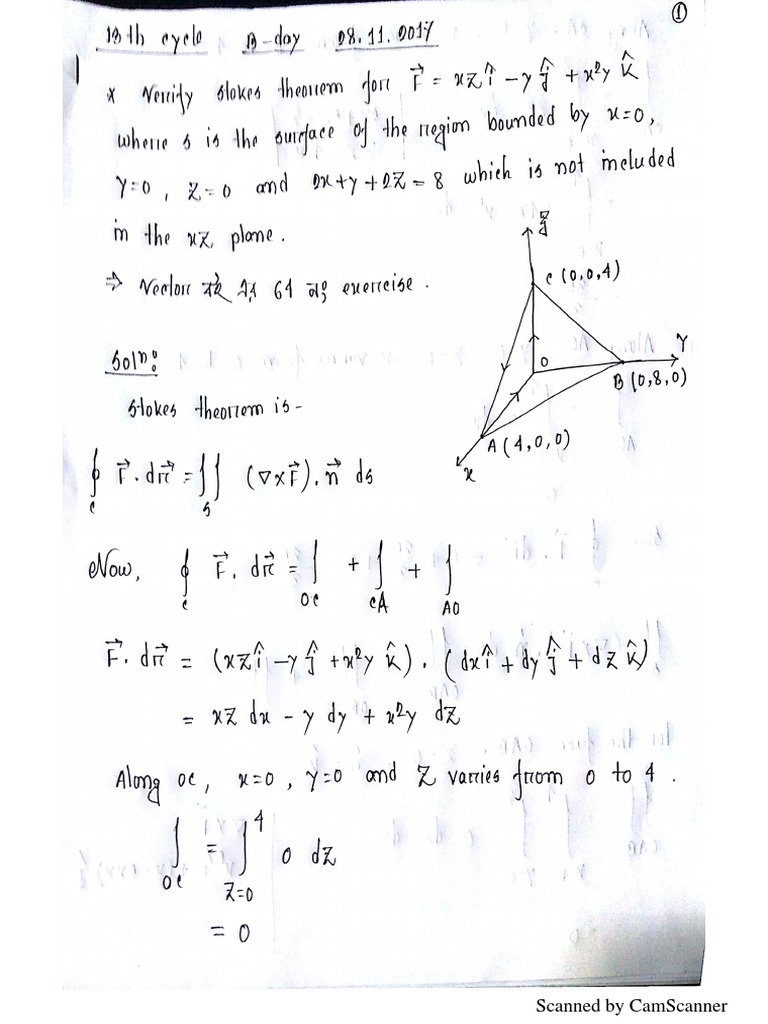 ①
13th cycle B-day 28.11.2017
* Verrify stokes theorem forr F⃗ = xz î - y ĵ + x²y k̂
wherre s is the surrface of the rregion bounded by x=0,
y=0, z=0 and 2x+y+2z=8 which is not included
in the xz plane.
⇒ Vectorr 64 exercise.
Solⁿ:
Stokes theorrem is-
∮_c F⃗. dr⃗ = ∬_s (∇xF⃗). n⃗ ds
Now, ∮_c F⃗. dr⃗ = ∫_OC + ∫_CA + ∫_AO
F⃗. dr⃗ = (xz î - y ĵ + x²y k̂). (dx î + dy ĵ + dz k̂)
= xz dx - y dy + x²y dz
Along OC, x=0, y=0 and z varries from 0 to 4.
∫_OC = ∫_{z=0}^4 0 dz
= 0
Z
C (0,0,4)
O
Y
B (0,8,0)
A (4,0,0)
X
Scanned by CamScanner